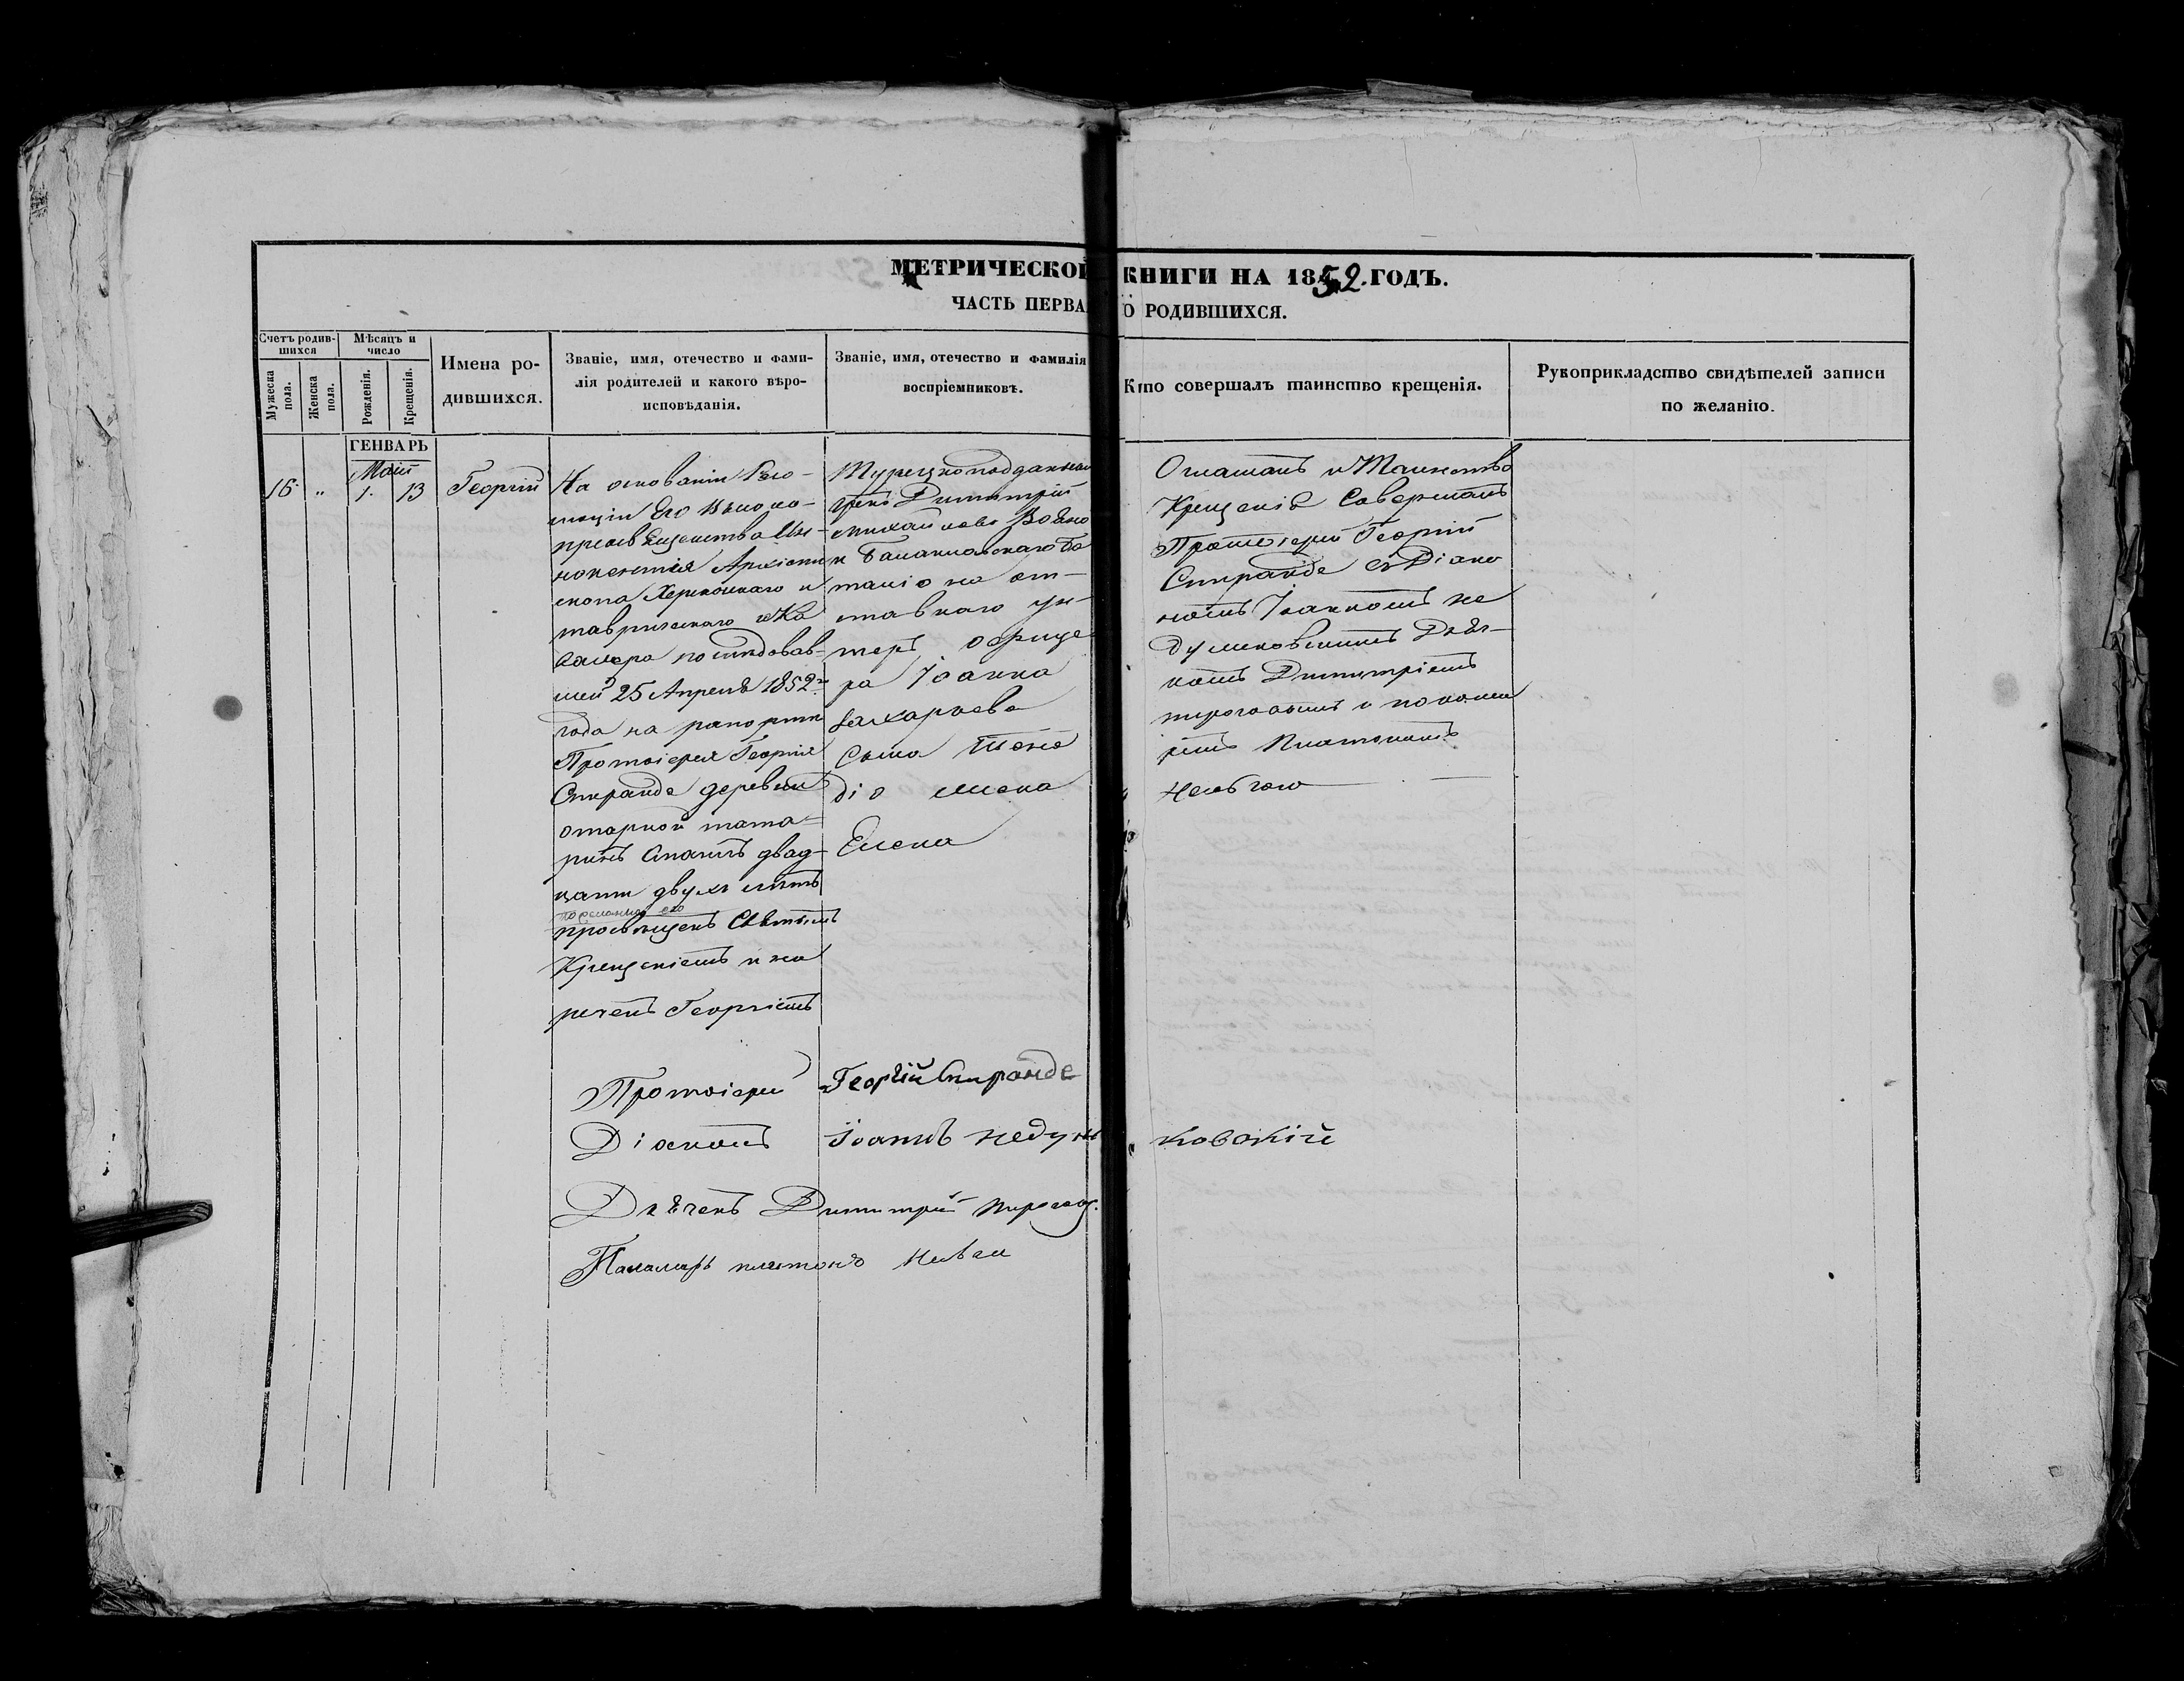 МЕТРИЧЕСКОЙ КНИГИ НА 1852. ГОДЪ.
ЧАСТЬ ПЕРВА О РОДИВШИХСЯ.
Счетъ родив-
шихся
Мужеска
пола.
Женска
пола.
Мѣсяцъ и
число
Рожденія.
Крещенія.
Имена ро-
дившихся.
Званіе, имя, отечество и фами-
лія родителей и какого вѣро-
исповѣданія.
Званіе, имя, отечество и фамилія
воспріемниковъ.
Кто совершалъ таинство крещенія.
Рукоприкладство свидѣтелей записи
по желанію.
ГЕНВАРЬ
Май
16. " 1. 13
Георгій
На основаніи Резо-
люціи Его Высоко-
преосвященства Ин-
нокентія Архіепи
скопа Херсонскаго и
таврическаго и Ка
валера послѣдовав-
шей 25 Апреля 1852го
года на рапортѣ
Протоіерея Георгія
Спиранде деревни
отарной тата-
ринъ двад-
цати двухъ лѣтъ
по желанію его
просвѣщенъ Святымъ
Крещеніемъ и на
реченъ Георгіемъ
Турецкоподданный
грекъ Димитрій
Михайловъ
и Балаклавскаго Ба
таліона от-
ставнаго ун-
теръ офице
ра Іоанна
Захарьева
сына
жена
Елена
Оглашалъ и Таинство
Крещенія Совершалъ
Протоіерей Георгій
Спиранде съ Діако
номъ Іоанномъ Не
думковскимъ Дьяч-
комъ Димитріемъ
и понома
ремъ Платономъ
Протоіерей Георгій Спиранде
Діаконъ Іоаннъ Недумковскій
Дьячекъ Димитрій
Панамарь платонъ